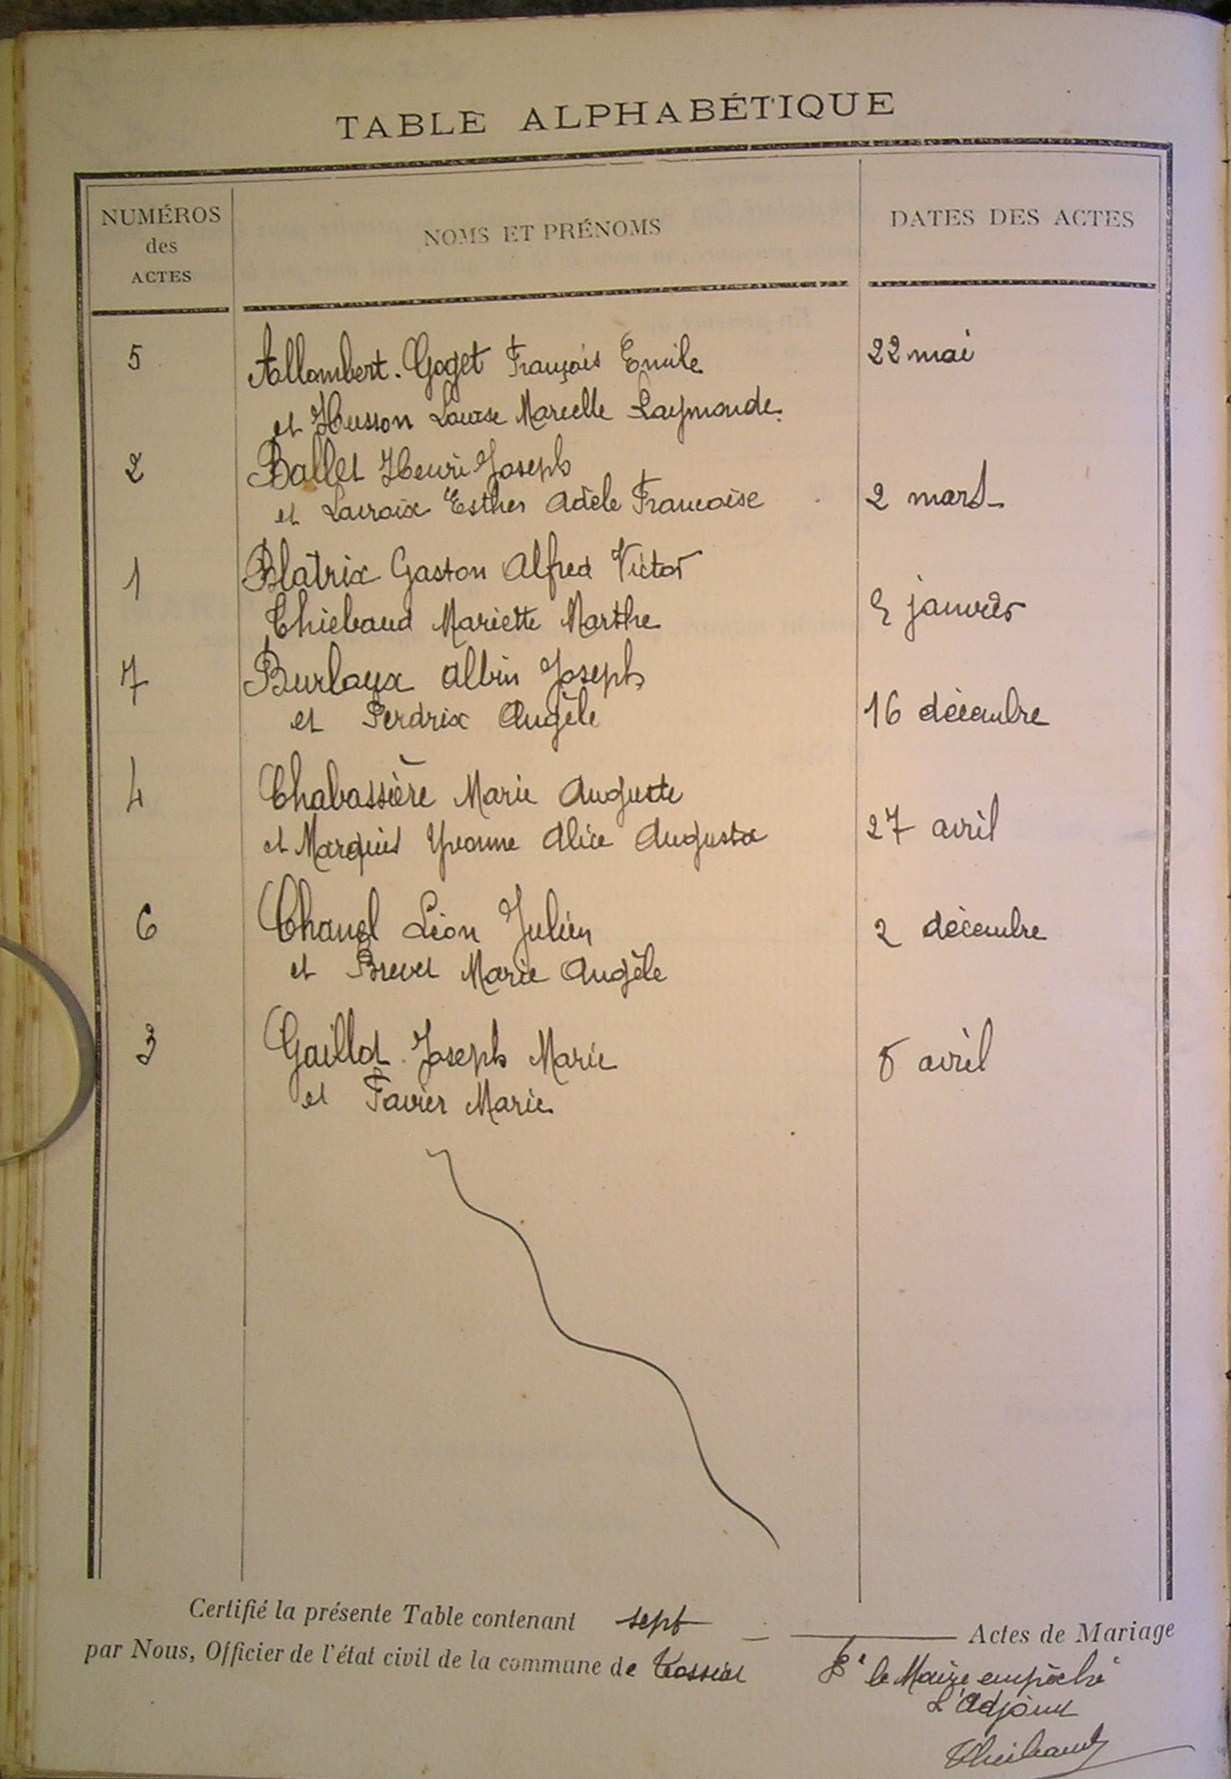 TABLE ALPHABÉTIQUE
NUMÉROS
des
ACTES
NOMS ET PRÉNOMS
DATES DES ACTES
5 Allombert-Goget François Emile 22 mai
et Husson Louise Marcelle Raymonde.
2 Ballet Henri Joseph
et Lacroix Esther Adèle Francoise 2 mars
1 Blatrix Gaston Alfred Victor
Thiébaud Mariette Marthe janvier
7 Burlaux Albin Joseph
et Perdrix Angèle 16 décembre
4 Chabassière Marie Auguste
et Marquis Yvonne Alice Augusta 27 avril
6 Chanel Léon Julien 2 décembre
et Brevet Marie Angèle
3 Gaillot Joseph Marie 8 avril
et Favier Marie
Certifié la présente Table contenant sept Actes de Mariage
par Nous, Officier de l'état civil de la commune de Tossiat
Pr le Maire empêché
L'Adjoint
Thiébaud